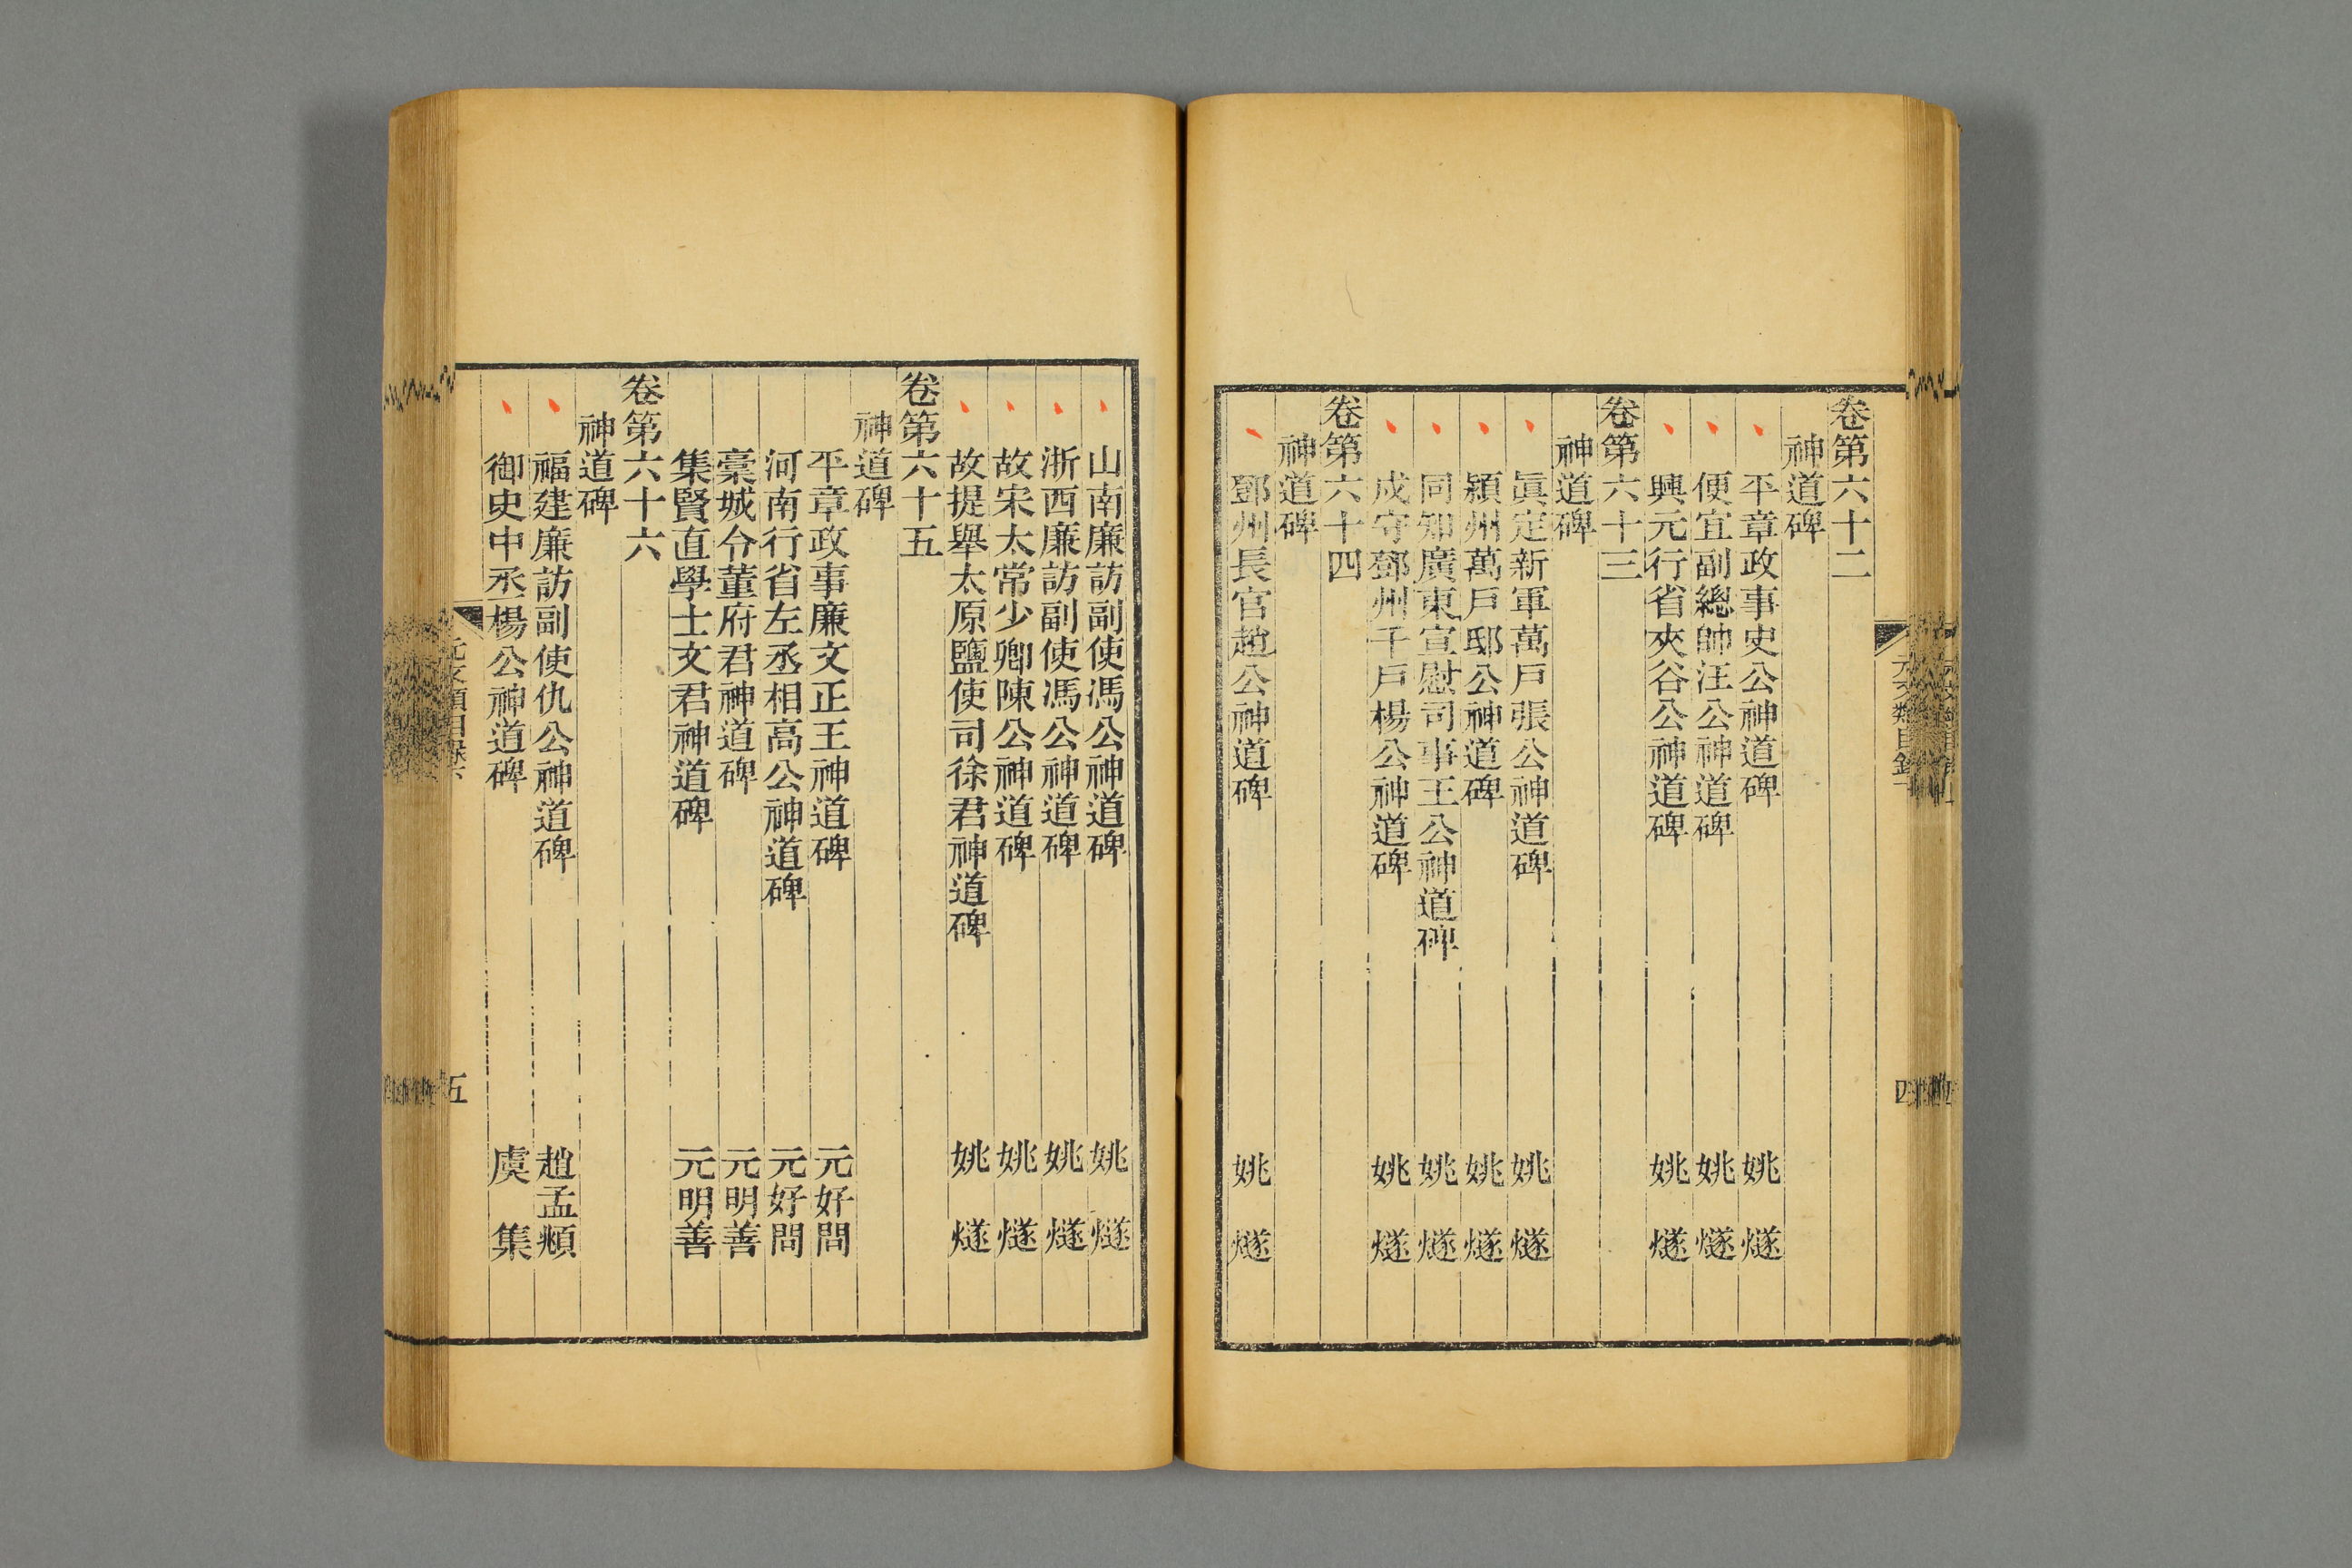 卷第六十二
神道碑
平章政事史公神道碑 姚燧
便宜副總帥汪公神道碑 姚燧
興元行省夾谷公神道碑 姚燧
卷第六十三
神道碑
眞定新軍萬戸張公神道碑 姚燧
潁州萬戸邸公神道碑 姚燧
同知廣東宣慰司事王公神道碑 姚燧
戍守鄧州千戸楊公神道碑 姚燧
卷第六十四
神道碑
鄧州長官趙公神道碑 姚燧
山南廉訪副使馮公神道碑 姚燧
浙西廉訪副使馮公神道碑 姚燧
故宋太常少卿陳公神道碑 姚燧
故提舉太原鹽使司徐君神道碑 姚燧
卷第六十五
神道碑
平章政事廉文正王神道碑 元好問
河南行省左丞相高公神道碑 元好問
藁城令董府君神道碑 元明善
集賢直學士文君神道碑 元明善
卷第六十六
神道碑
福建廉訪副使仇公神道碑 趙孟頫
御史中丞楊公神道碑 虞集
五